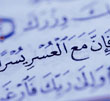 وِزْرَكَ
فَإِنَّ مَعَ الْعُسْرِ يُسْرًا
وَإِلَىٰ رَبِّكَ فَارْغَب